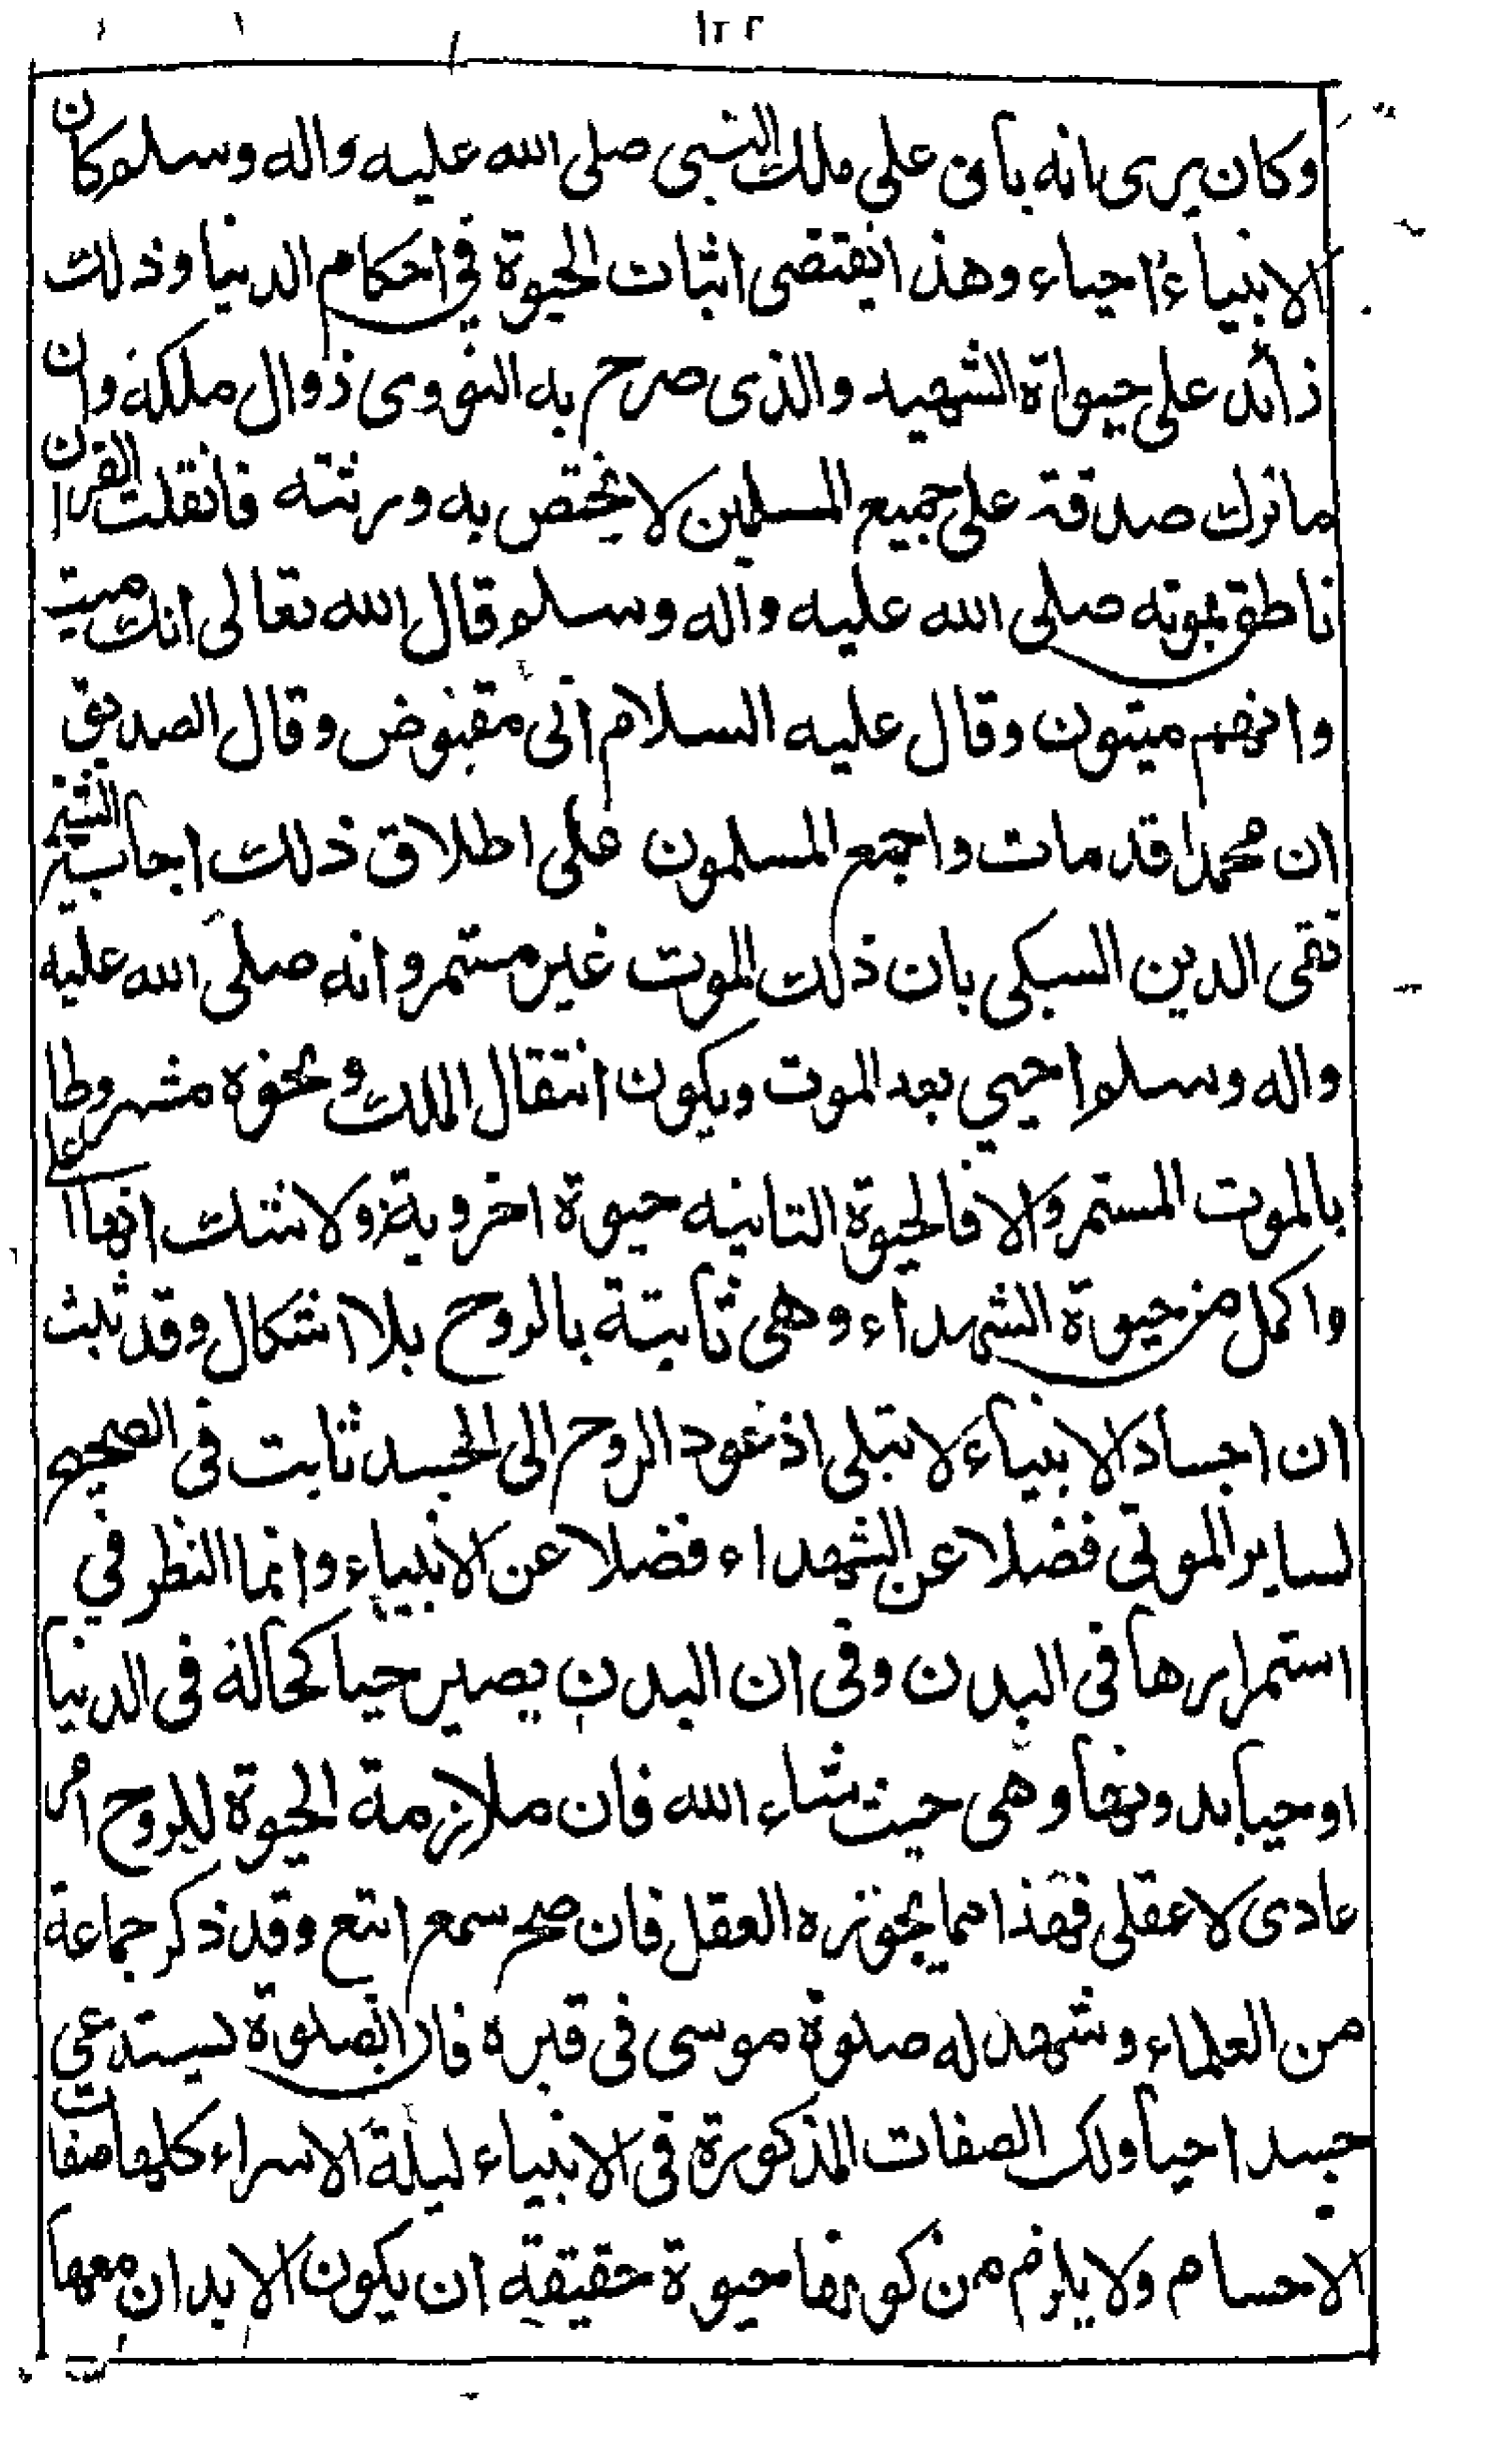 ١٢٢
وكان يرى انه باق على ملك النبي صلى الله عليه واله وسلم كان
الانبياء احياء وهذا يقتضى اثبات الحيوة في احكام الدنيا وذلك
زائد على حيواة الشهيد والذى صرح به النووى زوال ملكه وان
ما ترك صدقة على جميع المسلمين لا يختص به ورثته فان قلت القران
ناطق بموته صلى الله عليه واله وسلم قال الله تعالى انك ميت
وانهم ميتون وقال عليه السلام انى مقبوض وقال الصديق
ان محمدا قد مات واجمع المسلمون على اطلاق ذلك اجاب الشيخ
تقى الدين السبكى بان ذلك الموت غير مستمر وانه صلى الله عليه
واله وسلم احيي بعد الموت ويكون انتقال الملك ونحوه مشروطا
بالموت المستمر والا فالحيوة الثانيه حيوة اخروية ولا شك انها اعلى
واكمل من حيوة الشهداء وهى ثابتة بالروح بلا اشكال وقد ثبت
ان اجساد الانبياء لا تبلى اذ عود الروح الى الجسد ثابت فى الصحيح
لساير الموتى فضلا عن الشهداء فضلا عن الانبياء وانما النظر في
استمرارها فى البدن وفى ان البدن يصير حيا كحالة فى الدنيا
او حيا بدونها وهى حيث شاء الله فان ملازمة الحيوة للروح امر
عادى لا عقلى فهذا مما يجوزه العقل فان صح سمع اتبع وقد ذكر جماعة
من العلماء وشهد له صلوة موسى فى قبره فان الصلوة يستدعى
جسدا حيا ولك الصفات المذكورة فى الانبياء ليلة الاسراء كلها صفات
الاجسام ولا يلزم من كونها حيوة حقيقة ان يكون الابدان معها